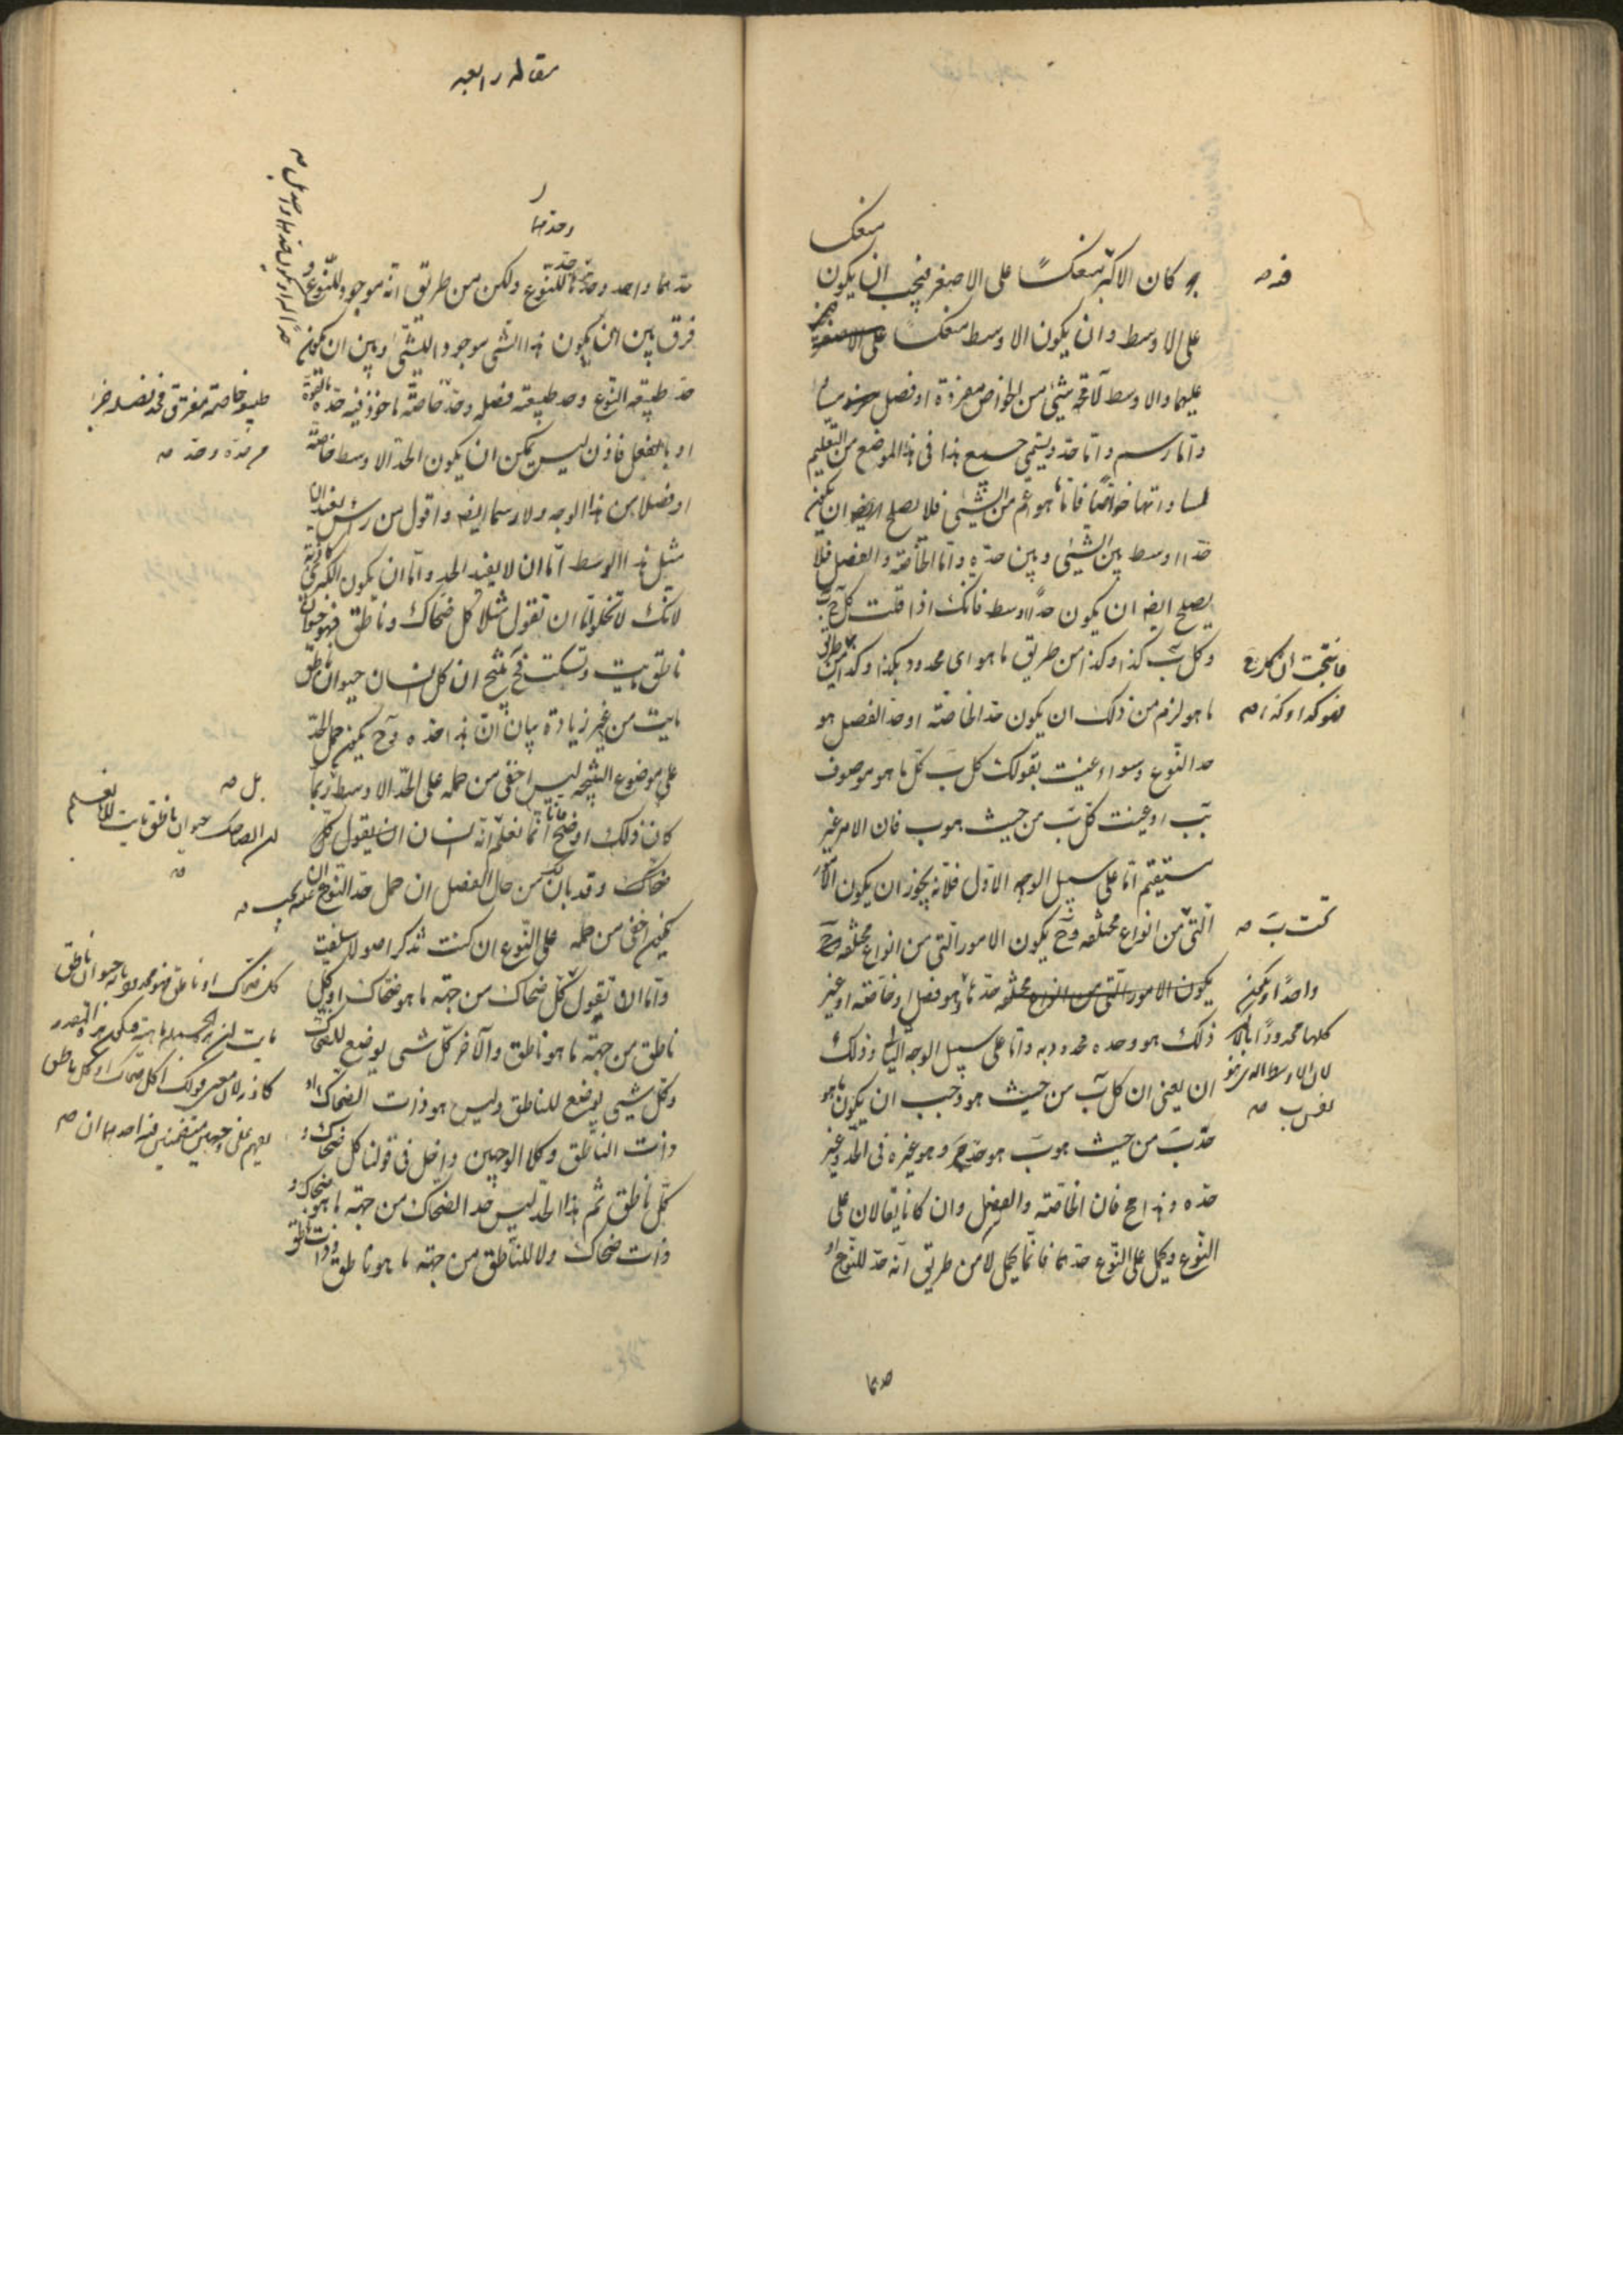 منعكسا
كان الاكبر منعكسًا على الاصغر فيجب ان يكون
على الاوسط وان يكون الاوسط منعكسا على الاصغر
عليهما والاوسط لا محة شيئ من الخواص مفردة او فصل مساو
واما رسم واما حد ويسمى جميع هذا فى هذا الموضع من التعليم
لمساواتها خواصا فاما ما هو اعم من الشيئ فلا يصلح ان يكون
حدا اوسط بين الشيئ وبين حده واما الخاصة والفصل فلا
يصلح ايضه ان يكون حدًا اوسط فانك اذا قلت كل ج ب
وكل ب كذا وكذا من طريق ما هو اى محدود بكذا وكذا من طريق
ما هو لزم من ذلك ان يكون حد الخاصة او حد الفصل هو
حد النوع وسواء عنيت بقولك كل ب كل ما هو موصوف
بب او عنيت كل ب من حيث هو ب فان الامر غير
مستقيم اما على سبيل الوجه الاول فلانه يجوز ان يكون الامور
التى من انواع مختلفه وح يكون الامور التى من انواع مختلفه
يكون الامور التى من انواع مختلفه حد ما هو فصل او خاصة او غير
ذلك هو وحده محدود به واما على سبيل الوجه الثانى وذلك
ان يعنى ان كل ب من حيث هو وجب ان يكون ما هو
حد ب من حيث هو ب هو حد ج وهو غيره فى الحد وغير
حده وهذا مح فان الخاصة والفصل وان كانا يقالان على
النوع ويحمل على النوع حدهما فانما يحمل لا من طريق انه حد للنوع او
حدهما
فانتجت ان كل ج
فهو كذا وكذا صه
تحت ب صه
واحدًا او يكون
كلها محدودًا
مقاله رابعه
وحدهما
حدهما واحد وحد ما للنوع ولكن من طريق انه موجود للنوع و
فرق بين ان يكون هذا الشى موجودا للشئ وبين ان يكون
حد طبيعة النوع وحد طبيعة فصله وحد خاصته ماخوذ فيه حده بالقوة
او بالفعل فاذن ليس يمكن ان يكون الحد الاوسط خاصة
او فصلا من هذا الوجه ولا رسما ايضه واقول من رأس
مثل هذا الاوسط اما ان لا يفيد الحد واما ان يكون الكبرى كاذبة
لانك لا تخلو اما ان تقول مثلا كل ضحاك وناطق فهو حيوان
ناطق مايت وتسكت فح ينتج ان كل انسان حيوان ناطق
مايت من غير زيادة بيان ان هذا حده وح يكون حمل الحد
على موضوع النتيجه ليس اخفى من حمله على الحد الاوسط ربما
كان ذلك اوضح فانا انما نعلم انه انسان ان يقول كل
ضحاك وقد بان لك من حال الفصل ان حمل حد النوع عليه يجب ان
يكون اخفى من حمله على النوع ان كنت تذكر اصولا سلفت
واما ان تقول كل ضحاك من جهة ما هو ضحاك او كل
ناطق من جهة ما هو ناطق والآخر كل شى يوضع للضحاك
وكل شيى يوضع للناطق وليس هو ذات الضحاك او
ذات الناطق وكلا الوجهين داخل فى قولنا كل ضحاك و
كل ناطق ثم هذا الحد ليس حد الضحاك من جهة ما هو ضحاك و
ذات ضحاك ولا للناطق من جهة ما هو ناطق وذات ناطق
بل صه
كل ضحاك او ناطق فهو محدود بانه حيوان ناطق